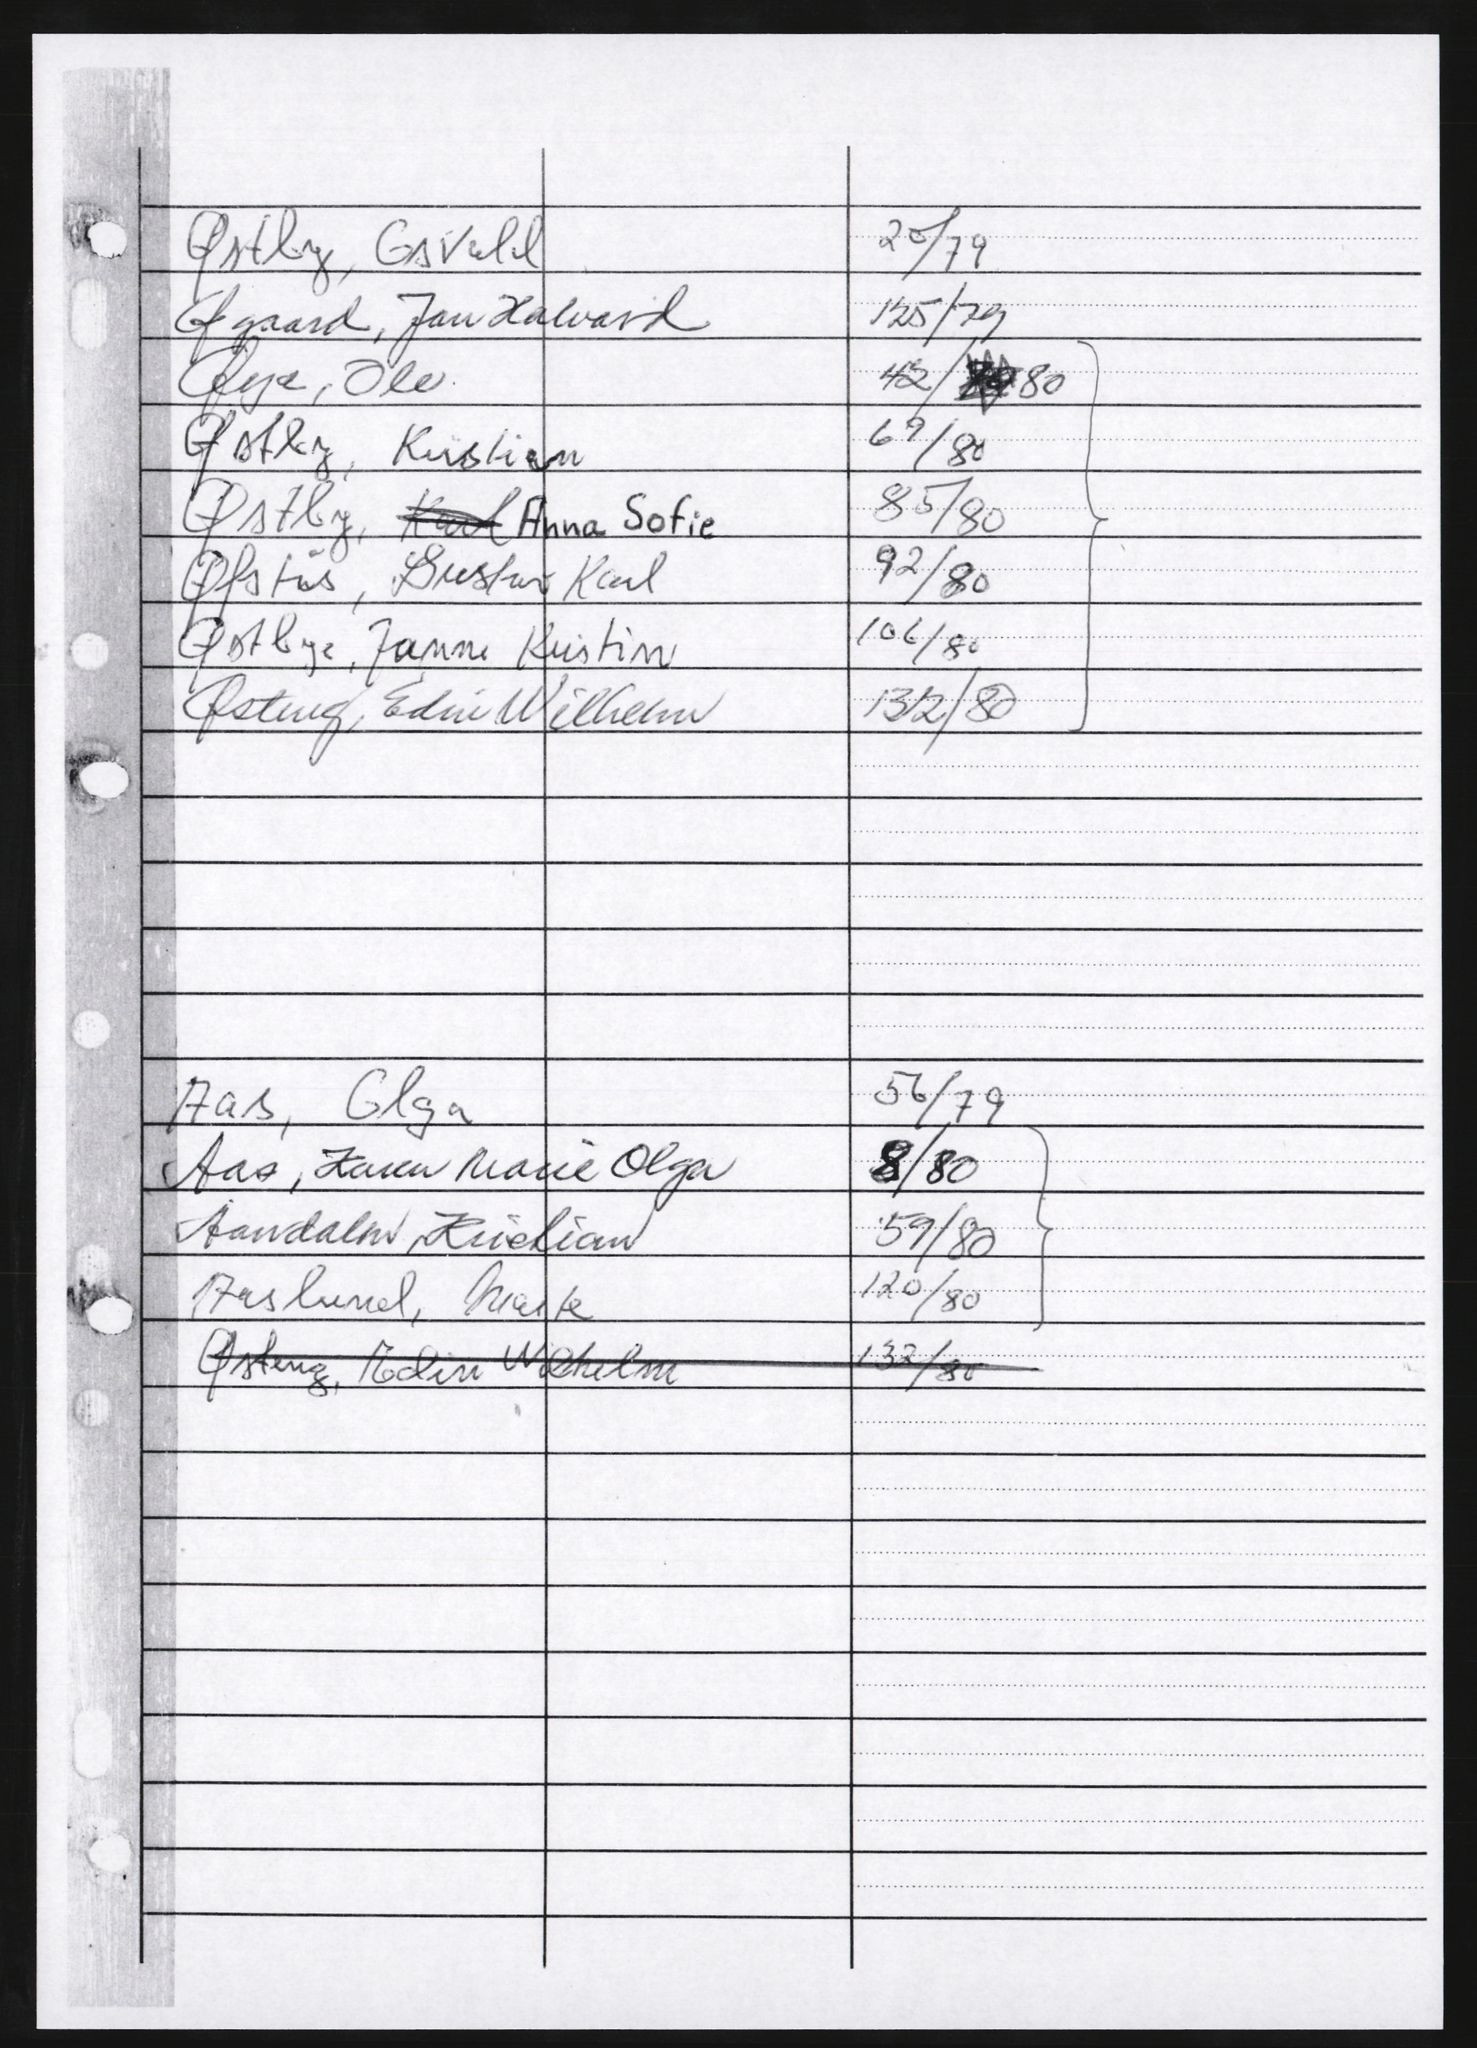 Østby, Osvald 20/79
Øgaard, Jan Halvard 125/79
Øye, Ole 42/80
Østby, Kristian 69/80
Østby, Karl Anna Sofie 85/80
Øfstås, Gustav Karl 92/80
Østbye, Janne Kristin 106/80
Østeng, Edin Wilhelm 132/80
Aas, Olga 56/79
Aas, Karen Marie Olga 8/80
Aandalen, Kristian 59/80
Aaslund, Marte 120/80
Østeng, Edin Wilhelm 132/80